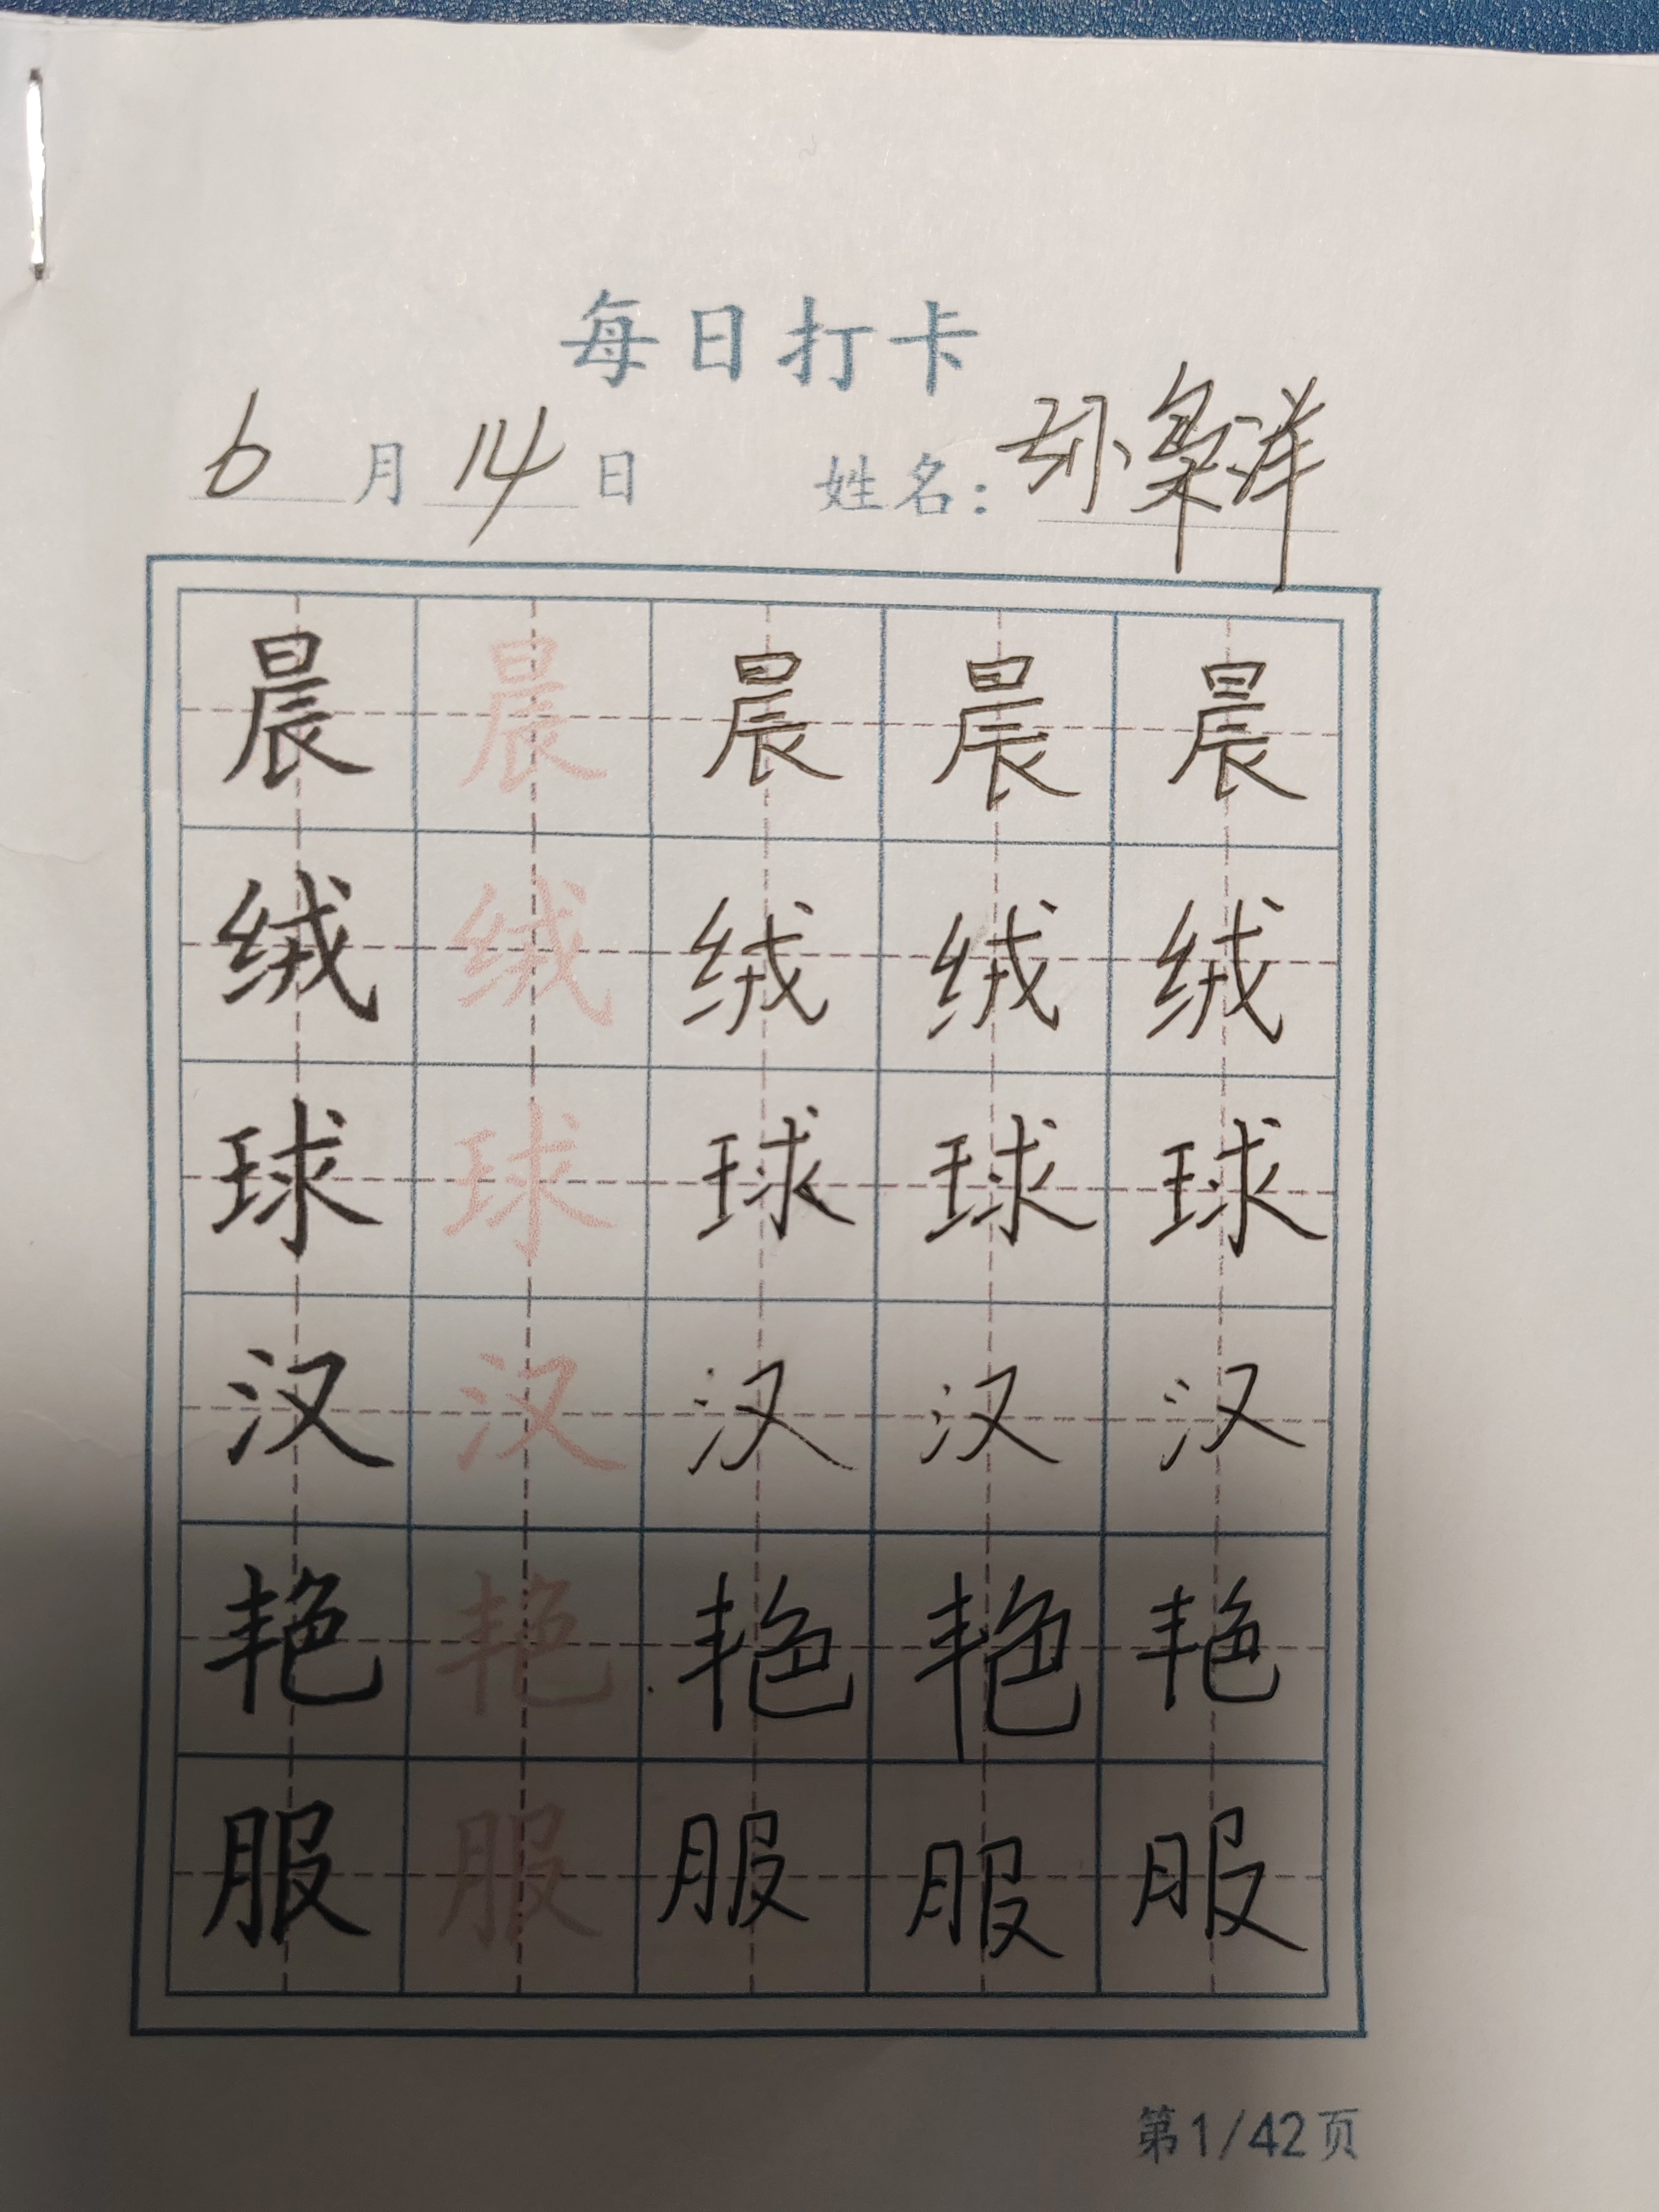 每日打卡
6月14日 姓名:孙
晨 晨 晨 晨 晨
绒 绒 绒 绒 绒
球 球 球 球 球
汉 汉 汉 汉 汉
艳 艳 艳 艳 艳
服 服 服 服 服
第1/42页